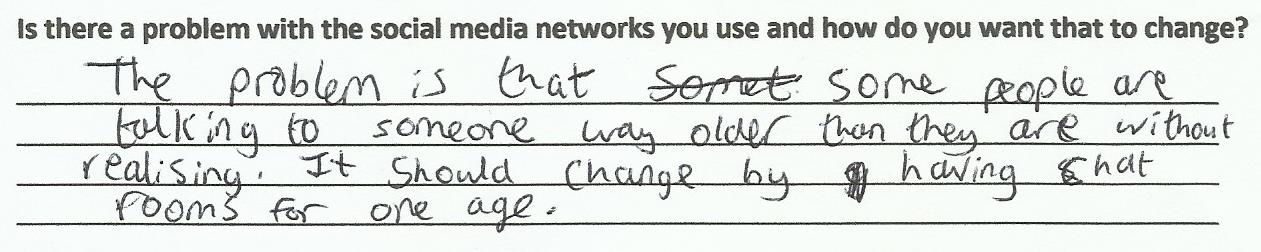 Is there a problem with the social media networks you use and how do you want that to change?
The problem is that Somet some people are
talking to someone way older than they are without
realising. It should change by having chat
rooms for one age.